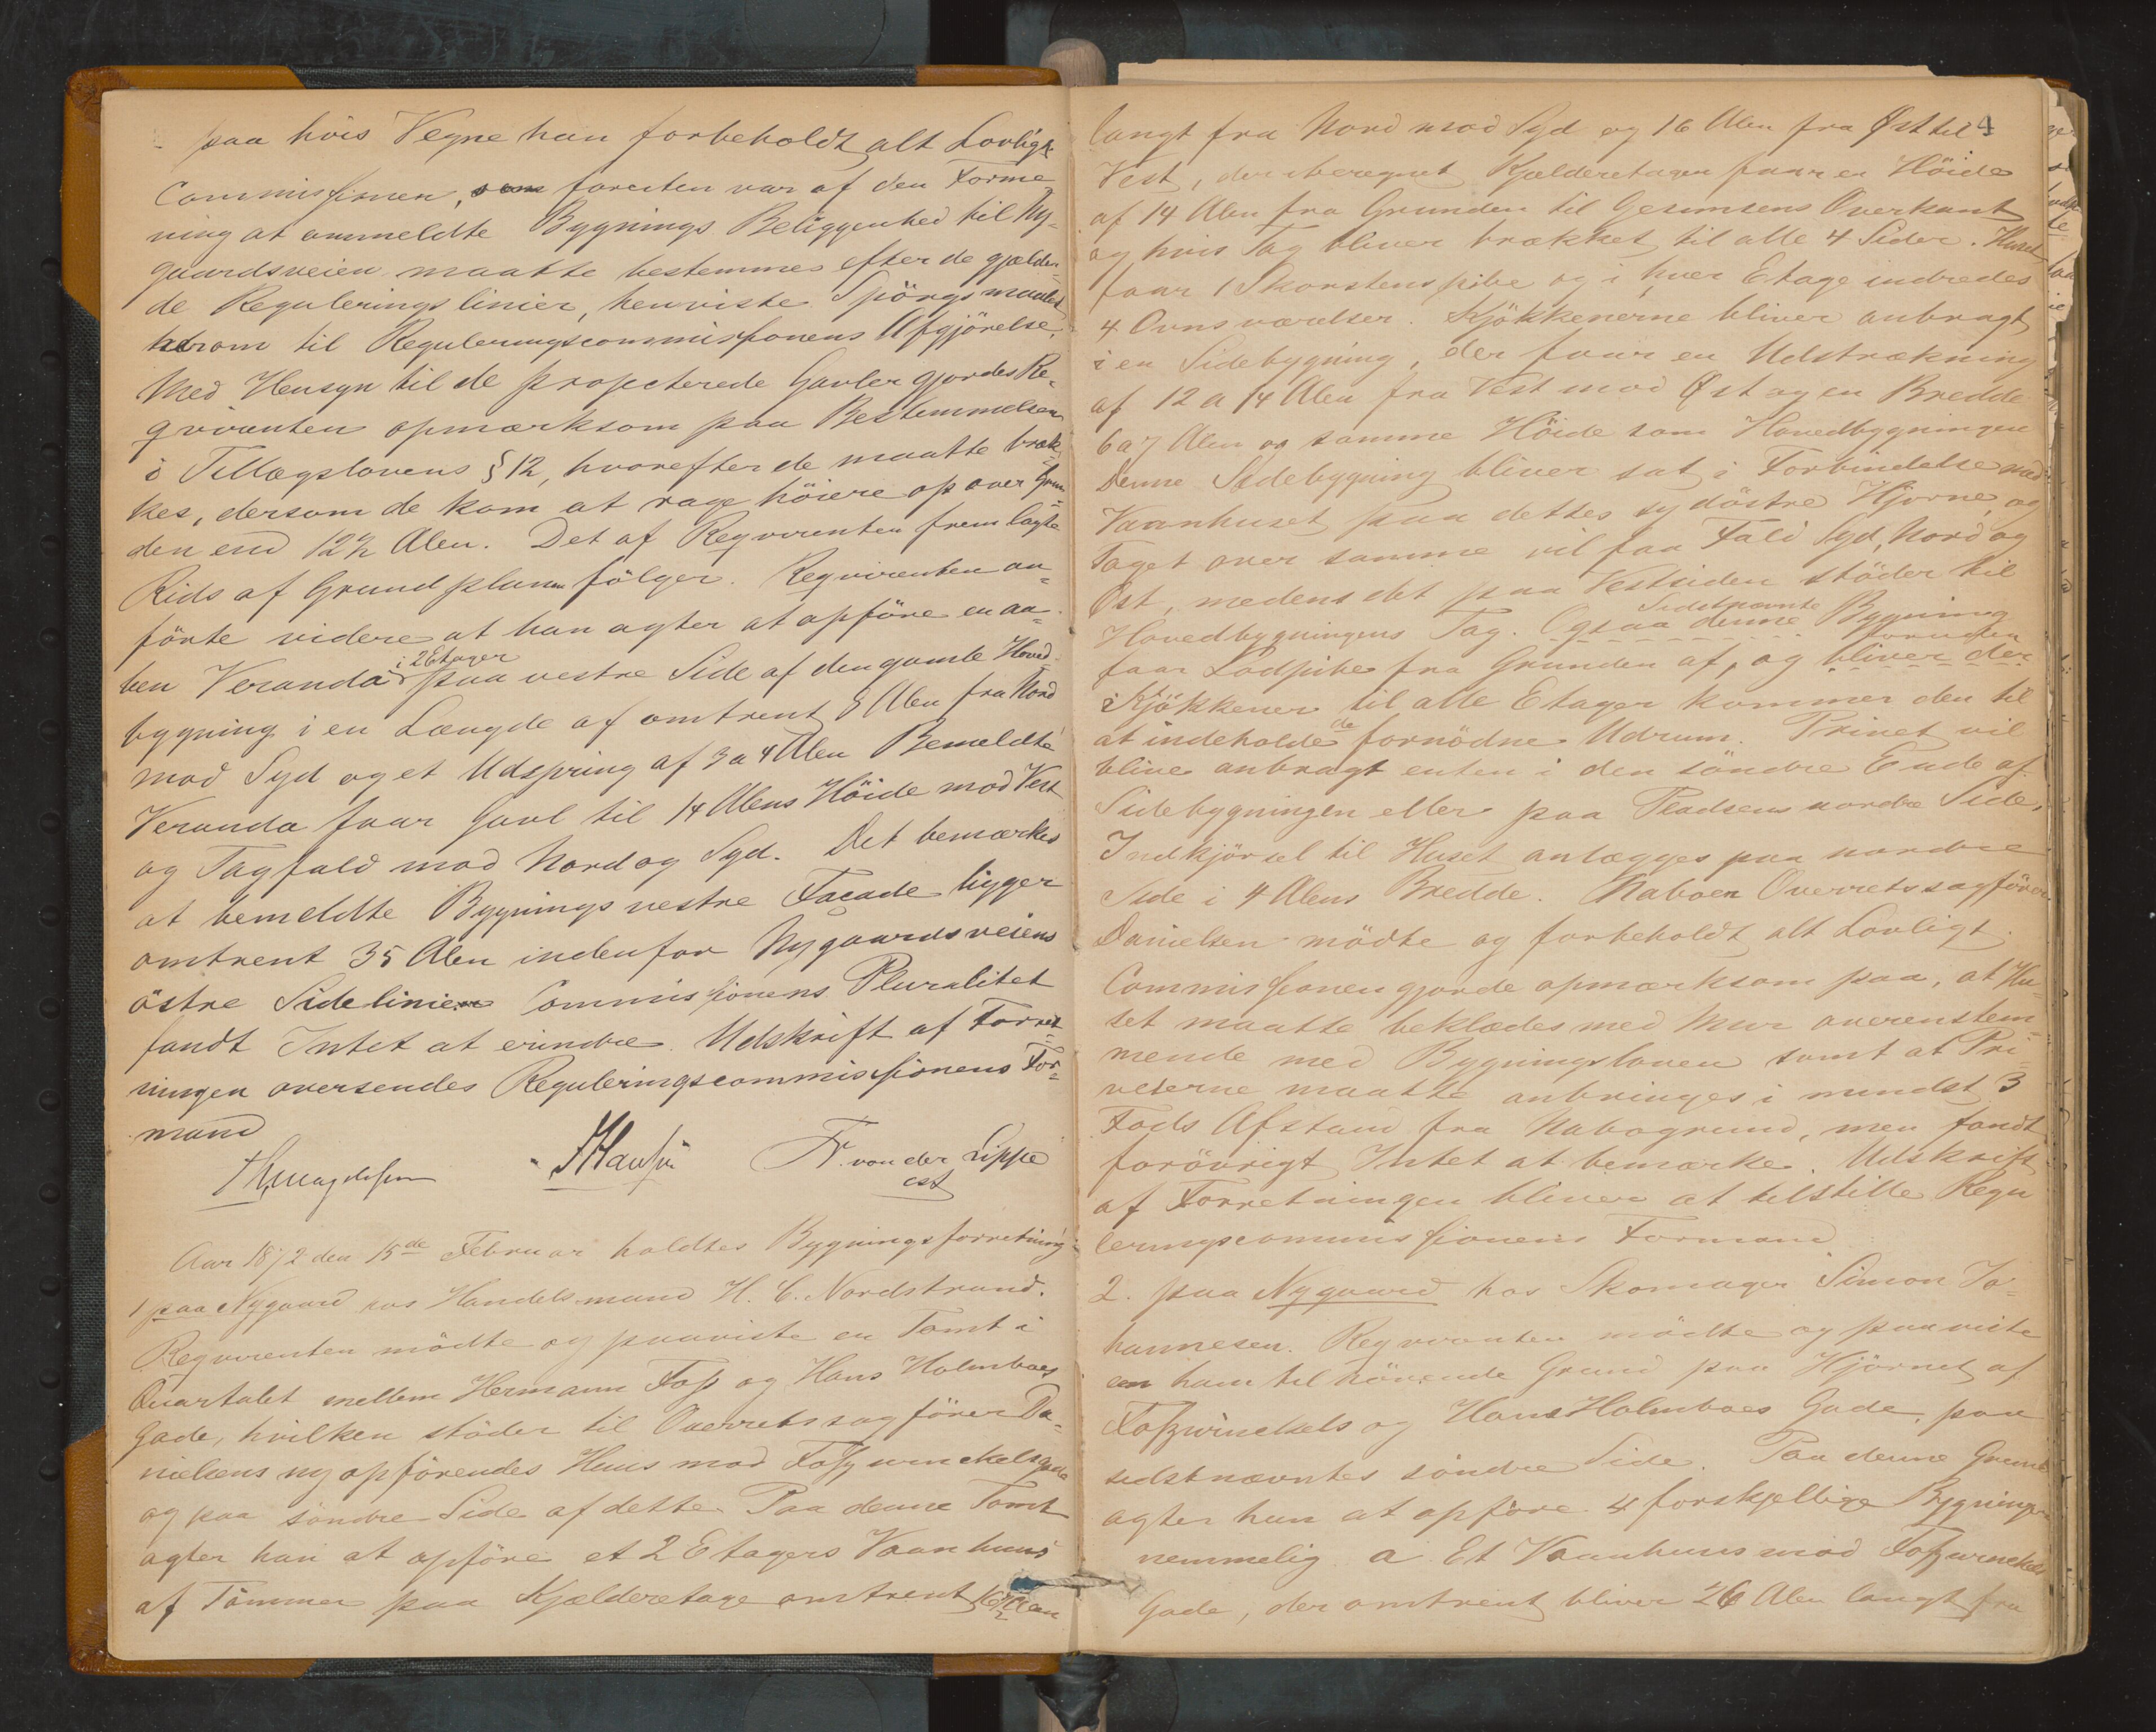 paa hvis Vegne han forbeholdt alt Lovligt.
Commissionen, som foresten var af den Forme-
ning at anmeldte Bygnings Beliggenhed til Ny-
gaardsveien maatte bestemmes efter de gjælden-
de Reguleringslinier, henviste Spörgsmaalet
herom til Reguleringscommissionens Afgjörelse.
Med Hensyn til de projecterede Gavler gjordes Re-
qvirenten opmærksom paa Bestemmelsen
i Tillægslovens § 12, hvorefter de maatte bræk-
kes, dersom de kom at rage höiere op over Grun-
den end 12½ Alen. Det af Reqvirenten fremlagte
Rids af Grundplanen fölger. Reqvirenten an-
förte videre at han agter at opföre en aa-
ben Veranda i 2 Etager paa vestre Side af den gamle Hoved-
bygning i en Længde af omtrent 8 Alen fra Nord
mod Syd og et Udspring af 3 a 4 Alen Bemeldte
Veranda faar Gavl til 14 Alens Höide mod Vest
og Tagfald mod Nord og Syd. Det bemærkes
at bemeldte Bygnings vestre Facade ligger
omtrent 35 Alen indenfor Nygaardsveiens
östre Sidelinie. Commissionens Pluralitet
fandt Intet at erindre. Udskrift af Forret-
ningen oversendes Reguleringscommissionens For-
mand
JHansen Fr. von der Lippe
cst
Aar 1872 den 15de Februar holdtes Bygningsforretning
1 paa Nygaard hos Handelsmand H. C. Nordstrand.
Reqvirenten mödte og paaviste en Tomt i
Qvartalet mellem Hermann Foss og Hans Holmboes
Gade, hvilken stöder til Overretssagförer Da-
nielsens nyopförendes Huus mod Fosswinckelsgade
og paa söndre Side af dette. Paa denne Tomt
agter han at opföre et 2 Etagers Vaanhuus
af Tömmer paa Kjælderetage omtrent 16½ Alen
4
langt fra Nord mod Syd og 16 Alen fra Öst til
Vest, der iberegnet Kjælderetagen faar en Höide
af 14 Alen fra Grunden til Gesimsens Overkant
og hvis Tag bliver brækket til alle 4 Sider. Huset
faar 1 Skorstenspibe og i hver Etage indredes
4 Ovnsværelser. Kjökkenerne bliver anbragt
i en Sidebygning, der faar en Udstrækning
af 12 a 14 Alen fra Vest mod Öst og en Bredde
6 a 7 Alen og samme Höide som Hovedbygningen
Denne Sidebygning bliver sat i Forbindelse med
Vaanhuset paa dettes sydöstre Hjorne, og
Taget over samme vil faa Fald Syd, Nord og
Öst, medens det paa Vestsiden stöder til
Hovedbygningens Tag. Ogsaa denne Sidstnævnte Bygning
faar Lodpibe fra Grunden af, og bliver der foruden
i Kjökkener til alle Etager kommer den til
at indeholde de fornödne Udrum. Privet vil
blive anbragt enten i den söndre Ende af
Sidebygningen eller paa Pladsens nordre Side,
Indkjörsel til Huset anlægges paa nordre
Side i 4 Alens Bredde. Naboen Overretssagförer
Danielsen mödte og forbeholdt alt Lovligt.
Commissionen gjorde opmærksom paa, at Hu-
set maatte beklædes med Mur overenstem-
mende med Bygningsloven samt at Pri-
veterne maatte anbringes i mindst 3
Fods Afstand fra Nabogrund, men fandt
forövrigt Intet at bemærke. Udskrift
af Forretningen bliver at tilstille Regu
leringscommissionens Formand
2. paa Nygaard hos Skomager Simon Jo-
hannesen. Reqvirenten mödte og paaviste
en ham tilhörende Grund paa Hjörnet af
Fosswinckels og Hans Holmboes Gade, paa
sidstnævntes söndre Side. Paa denne Grund
agter han at opföre 4 forskjellige Bygninger
nemmelig a. Et Vaanhuus mod Fosswinckels
Gade, der omtrent bliver 26 Alen langt fra